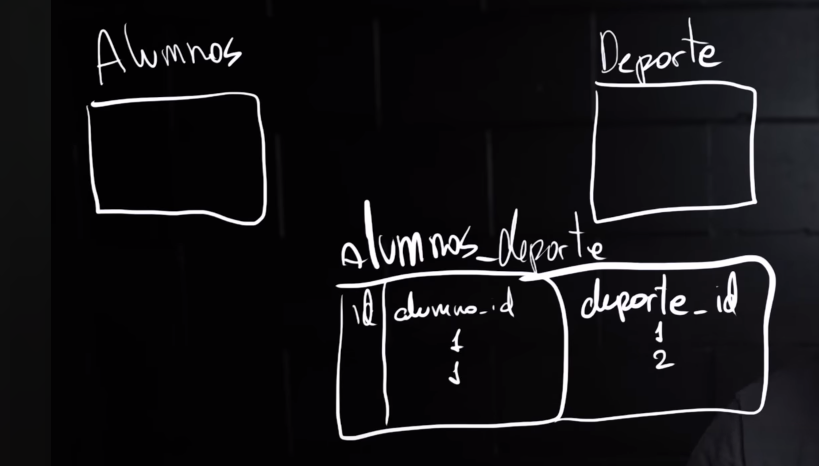 Alumnos
Deporte
Alumnos_deporte
id alumno_id deporte_id
1 1
1 2